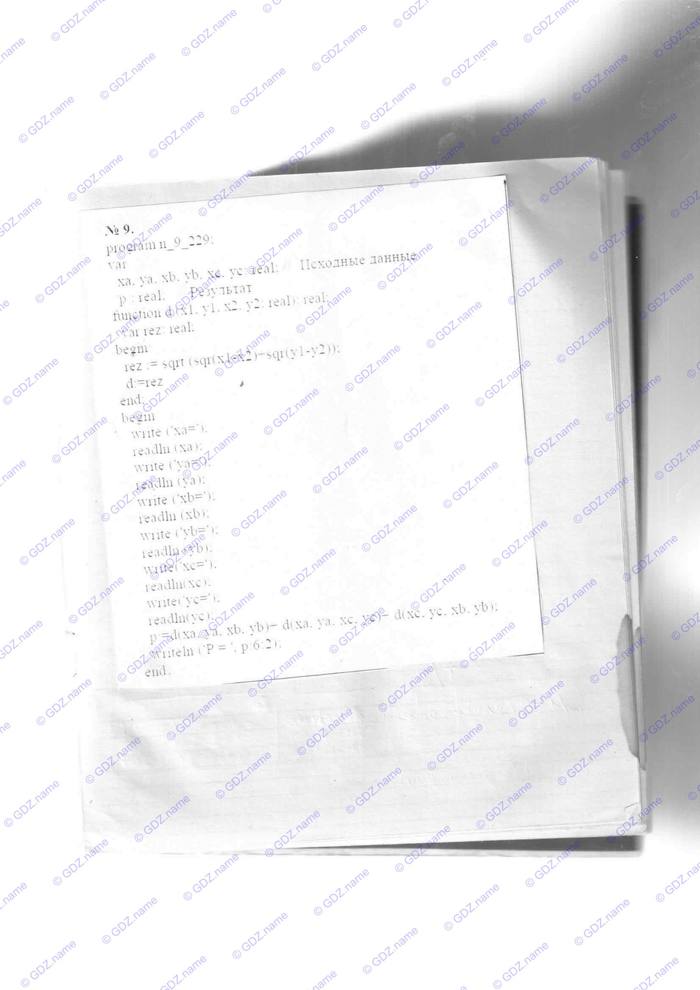 № 9.
program n_9_229;
var
xa, ya, xb, yb, xc, yc: real; Исходные данные
p : real; Результат
function d(x1, y1, x2, y2: real): real;
var rez: real;
begin
rez := sqrt (sqr(x1-x2)+sqr(y1-y2));
d:=rez
end;
begin
write ('xa=');
readln (xa);
write ('ya=');
readln (ya);
write ('xb=');
readln (xb);
write ('yb=');
readln (yb);
write('xc=');
readln(xc);
write('yc=');
readln(yc);
p:=d(xa, ya, xb, yb)+ d(xa, ya, xc, yc)+ d(xc, yc, xb, yb);
writeln ('P = ', p:6:2);
end.
© GDZ.name